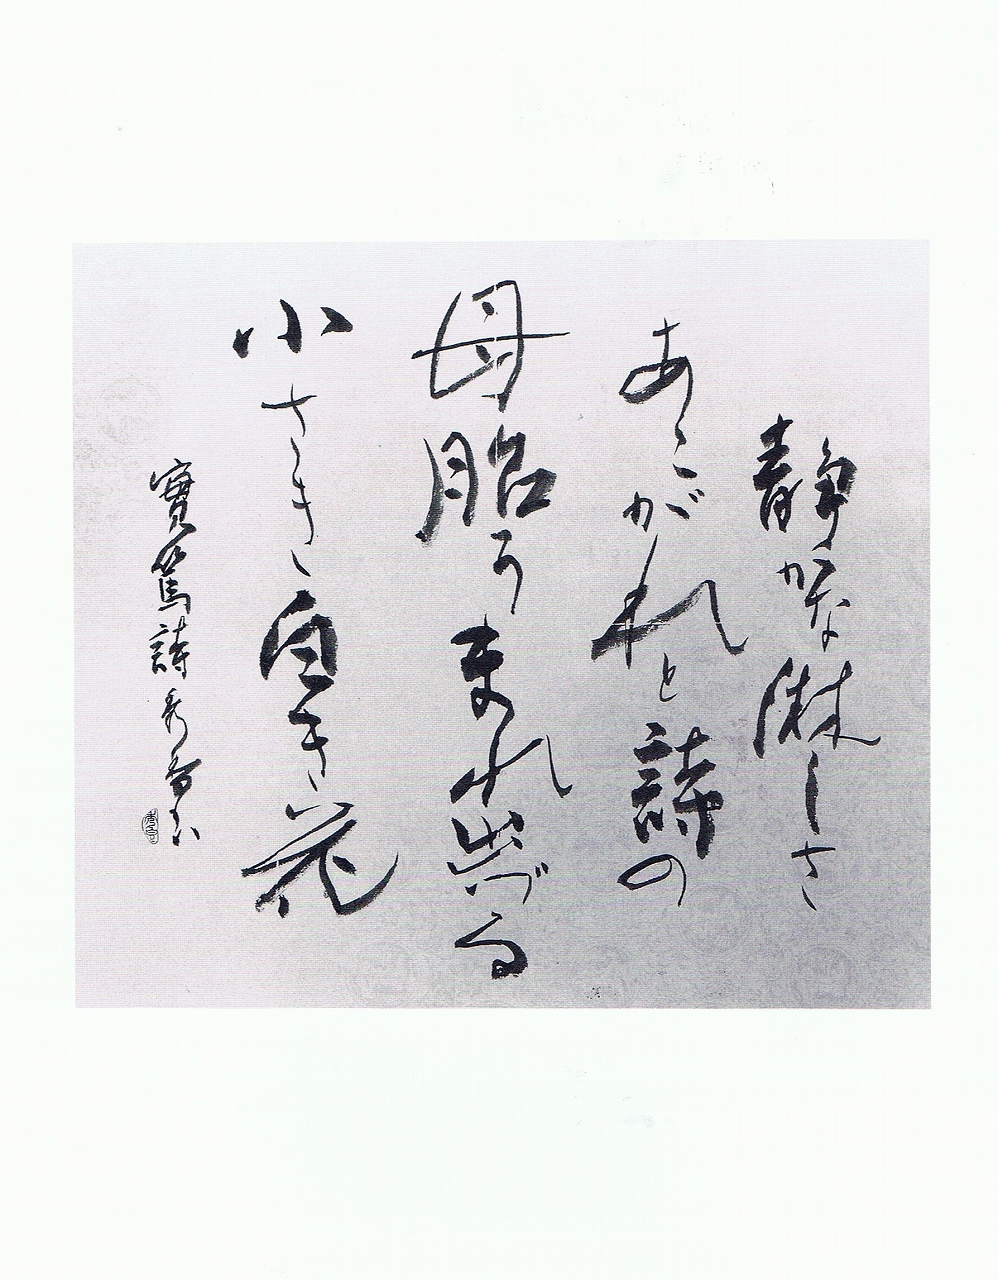 静かな淋しさ
あこがれと詩の
母胎うまれ出づる
小さき白き花
實篤詩 秀